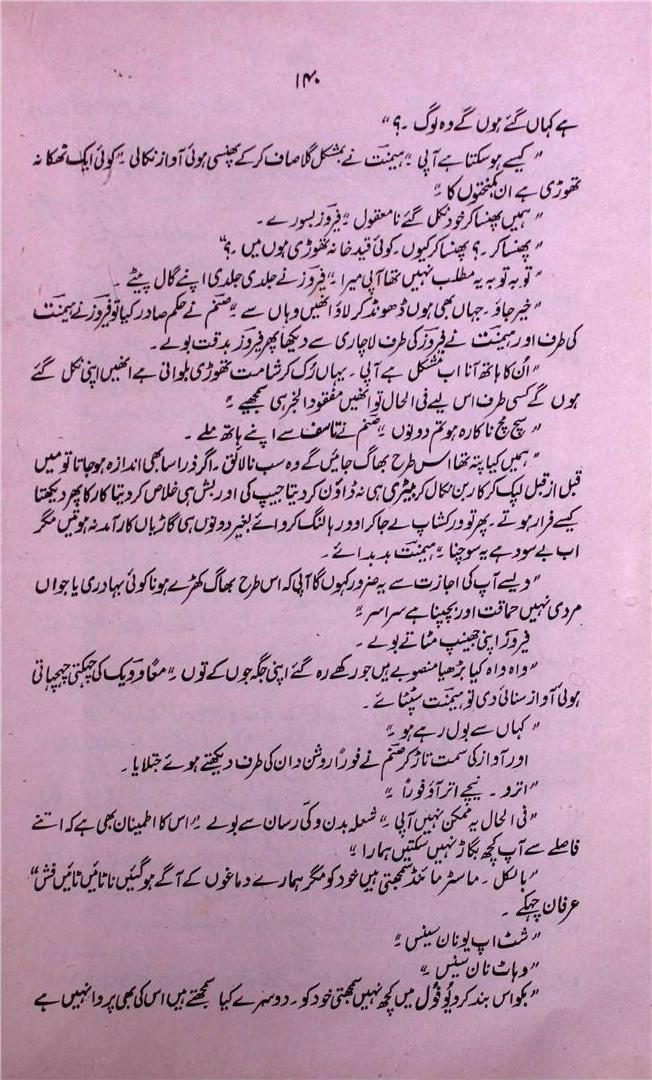 ۱۴۰
ہے کہاں گئے ہوں گے وہ لوگ ۔؟“
” کیسے ہو سکتا ہے آپی ۔“ ہیمنت نے بمشکل گلا صاف کر کے پھنسی ہوئی آواز نکالی ۔” کوئی ایک ٹھکانہ
تھوڑی ہے ان کمبختوں کا ۔“
” ہمیں پھنسا کر خود نکل گئے نامعقول ۔“ فیروز بسورے ۔
” پھنسا کر ۔؟ پھنسا کر کیوں ۔ کوئی قید خانہ تھوڑی ہوں میں ۔؟“
” توبہ توبہ یہ مطلب نہیں تھا آپی میرا ۔“ فیروز نے جلدی جلدی اپنے گال پیٹے ۔
” خیر جاؤ ۔ جہاں بھی ہوں ڈھونڈ کر لاؤ انھیں وہاں سے ۔“ صنم نے حکم صادر کیا تو فیروز نے ہیمنت
کی طرف اور ہیمنت نے فیروز کی طرف لاچاری سے دیکھا پھر فیروز بدقت بولے ۔
” اُن کا ہاتھ آنا اب مشکل ہے آپی ۔ یہاں رُک کر شامت تھوڑی بلوانی ہے انھیں اپنی نکل گئے
ہوں گے کسی طرف اس لیے فی الحال تو انھیں مفقود الخبر ہی سمجھیے ۔“
” سچ مچ ناکارہ ہو تم دونوں ۔“ صنم نے تاسف سے اپنے ہاتھ ملے ۔
” ہمیں کیا پتہ تھا اس طرح بھاگ جائیں گے وہ سب نالائق ۔ اگر ذرا سا بھی اندازہ ہو جاتا تو میں
قبل از قبل لپک کر کاربن نکال کر بیٹری ہی نہ ڈاؤن کر دیتا جیپ کی اور بش ہی خلاص کر دیتا کار کا پھر دیکھتا
کیسے فرار ہوتے ۔ پھر تو ورکشاپ لے جا کر اوور ہالنگ کروائے بغیر دونوں ہی گاڑیاں کارآمد نہ ہوتیں مگر
اب بے سود ہے یہ سوچنا ۔“ ہیمنت بدبدائے ۔
” ویسے آپ کی اجازت سے یہ ضرور کہوں گا آپی کہ اس طرح بھاگ کھڑے ہونا کوئی بہادری یا جواں
مردی نہیں حماقت اور بچپنا ہے سراسر ۔“
فیروز اپنی جھینپ مٹاتے بولے ۔
” واہ واہ کیا بڑھیا منصوبے ہیں جو رکھے رہ گئے اپنی جگہ جوں کے توں ۔“ معاً وویک کی چہکتی چہچہاتی
ہوئی آواز سنائی دی تو ہیمنت سٹپٹائے ۔
” کہاں سے بول رہے ہو ۔“
اور آواز کی سمت تاڑ کر صنم نے فوراً روشن دان کی طرف دیکھتے ہوئے جتلایا ۔
” اترو ۔ نیچے اتر آؤ فوراً ۔“
” فی الحال یہ ممکن نہیں آپی ۔“ شعلہ بدن وکی رسان سے بولے ۔” اس کا اطمینان بھی ہے کہ اتنے
فاصلے سے آپ کچھ بگاڑ نہیں سکتیں ہمارا ۔“
” بالکل ۔ ماسٹر مائنڈ سمجھتی ہیں خود کو مگر ہمارے دماغوں کے آگے ہو گئیں نا ٹائیں ٹائیں فش“
عرفان چہکے ۔
” شٹ اپ یو نان سینس ۔“
” وہاٹ نان سینس ۔“
” بکواس بند کرو یُو فُول میں کچھ نہیں سمجھتی خود کو ۔ دوسرے کیا سمجھتے ہیں اس کی بھی پروا نہیں ہے